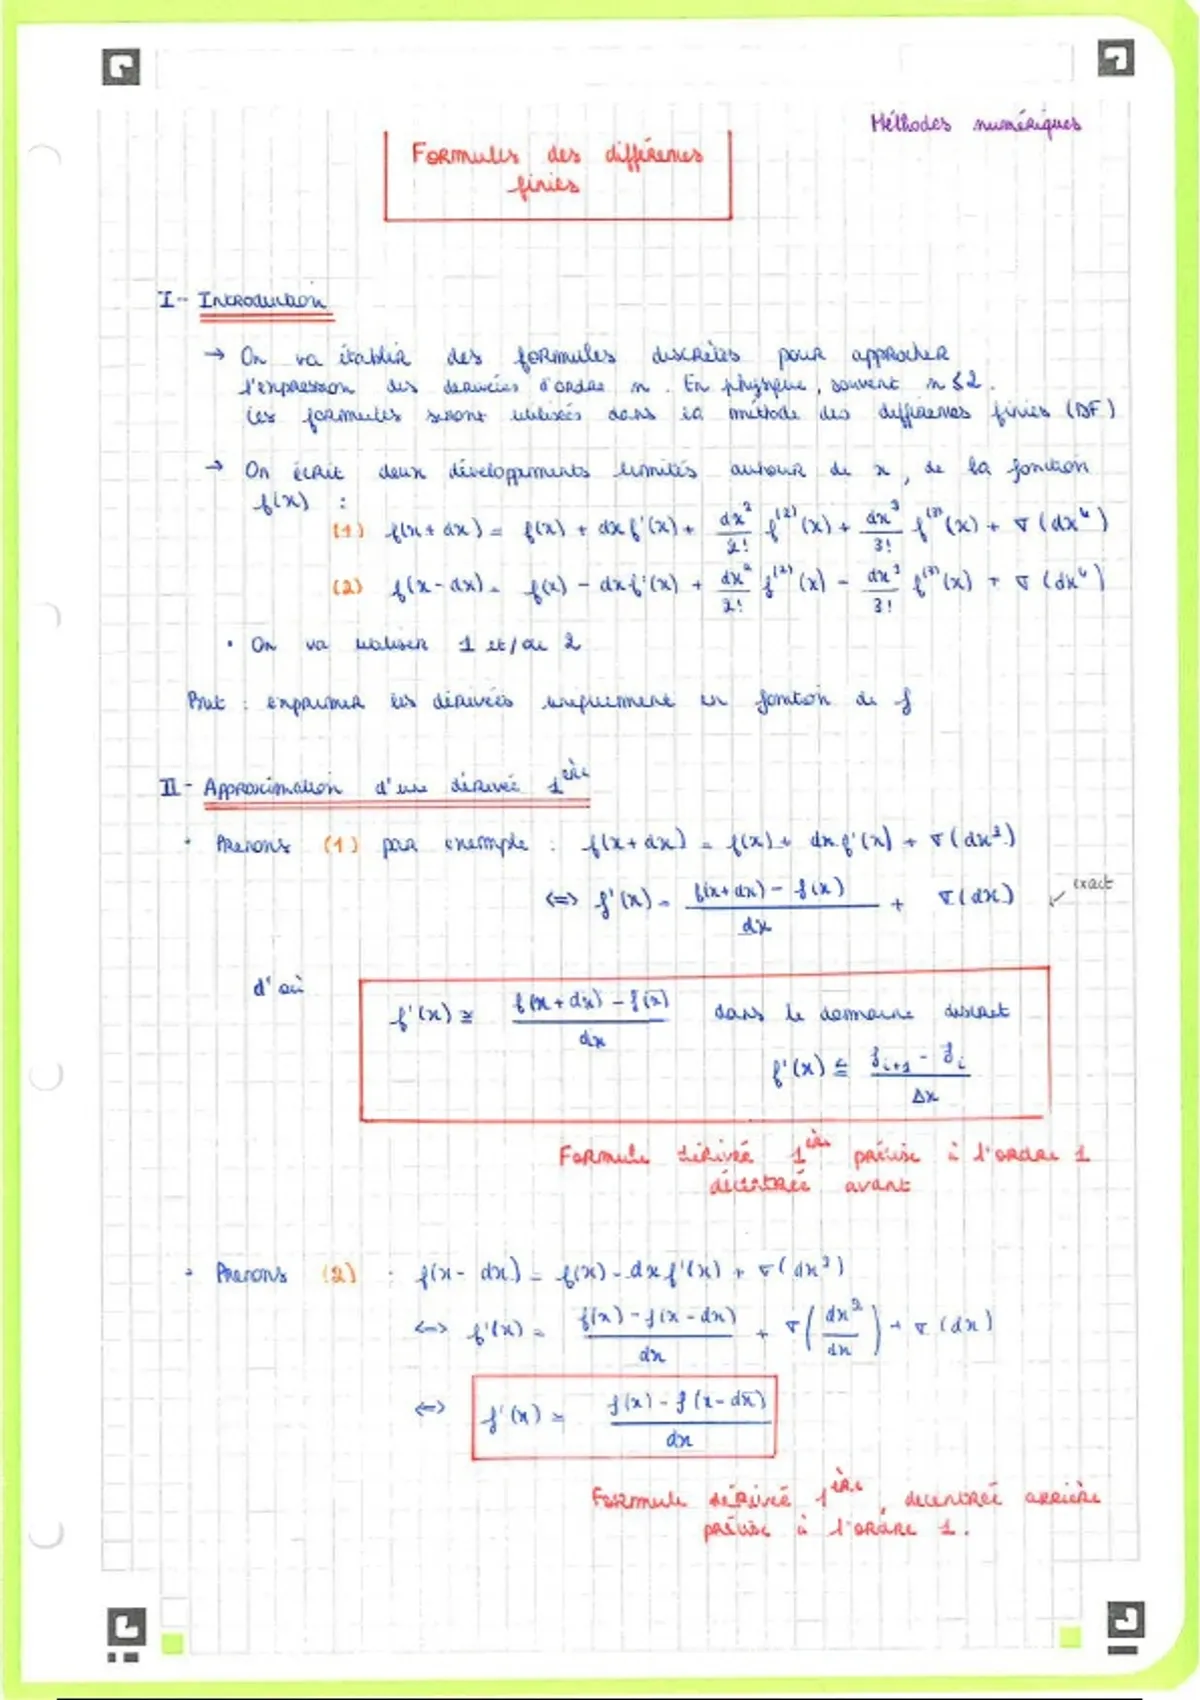 Méthodes numériques
Formules des différences
finies
I - Introduction
→ On va établir des formules discrètes pour approcher
l'expression des dérivées d'ordre n. En physique, souvent n ≤ 2.
Ces formules seront utilisées dans la méthode des différences finies (DF)
→ On écrit deux développements limités autour de x, de la fonction
f(x) :
(1) f(x+dx) = f(x) + dx f'(x) + dx²/2! f⁽²⁾(x) + dx³/3! f⁽³⁾(x) + σ(dx⁴)
(2) f(x-dx) = f(x) - dx f'(x) + dx²/2! f⁽²⁾(x) - dx³/3! f⁽³⁾(x) + σ(dx⁴)
• On va utiliser 1 et/ou 2
But : exprimer les dérivées uniquement en fonction de f
II - Approximation d'une dérivée 1ère
• Prenons (1) par exemple : f(x+dx) = f(x) + dx f'(x) + σ(dx²)
<=> f'(x) = (f(x+dx) - f(x))/dx + σ(dx) exact
d'où f'(x) ≅ (f(x+dx) - f(x))/dx dans le domaine discret
f'(x) ≅ (fᵢ₊₁ - fᵢ)/Δx
Formule dérivée 1ère précise à l'ordre 1
décentrée avant
• Prenons (2) : f(x-dx) = f(x) - dx f'(x) + σ(dx²)
<=> f'(x) = (f(x) - f(x-dx))/dx + σ(dx²/dx) → σ(dx)
<=> f'(x) ≃ (f(x) - f(x-dx))/dx
Formule dérivée 1ère, décentrée arrière
précise à l'ordre 1.